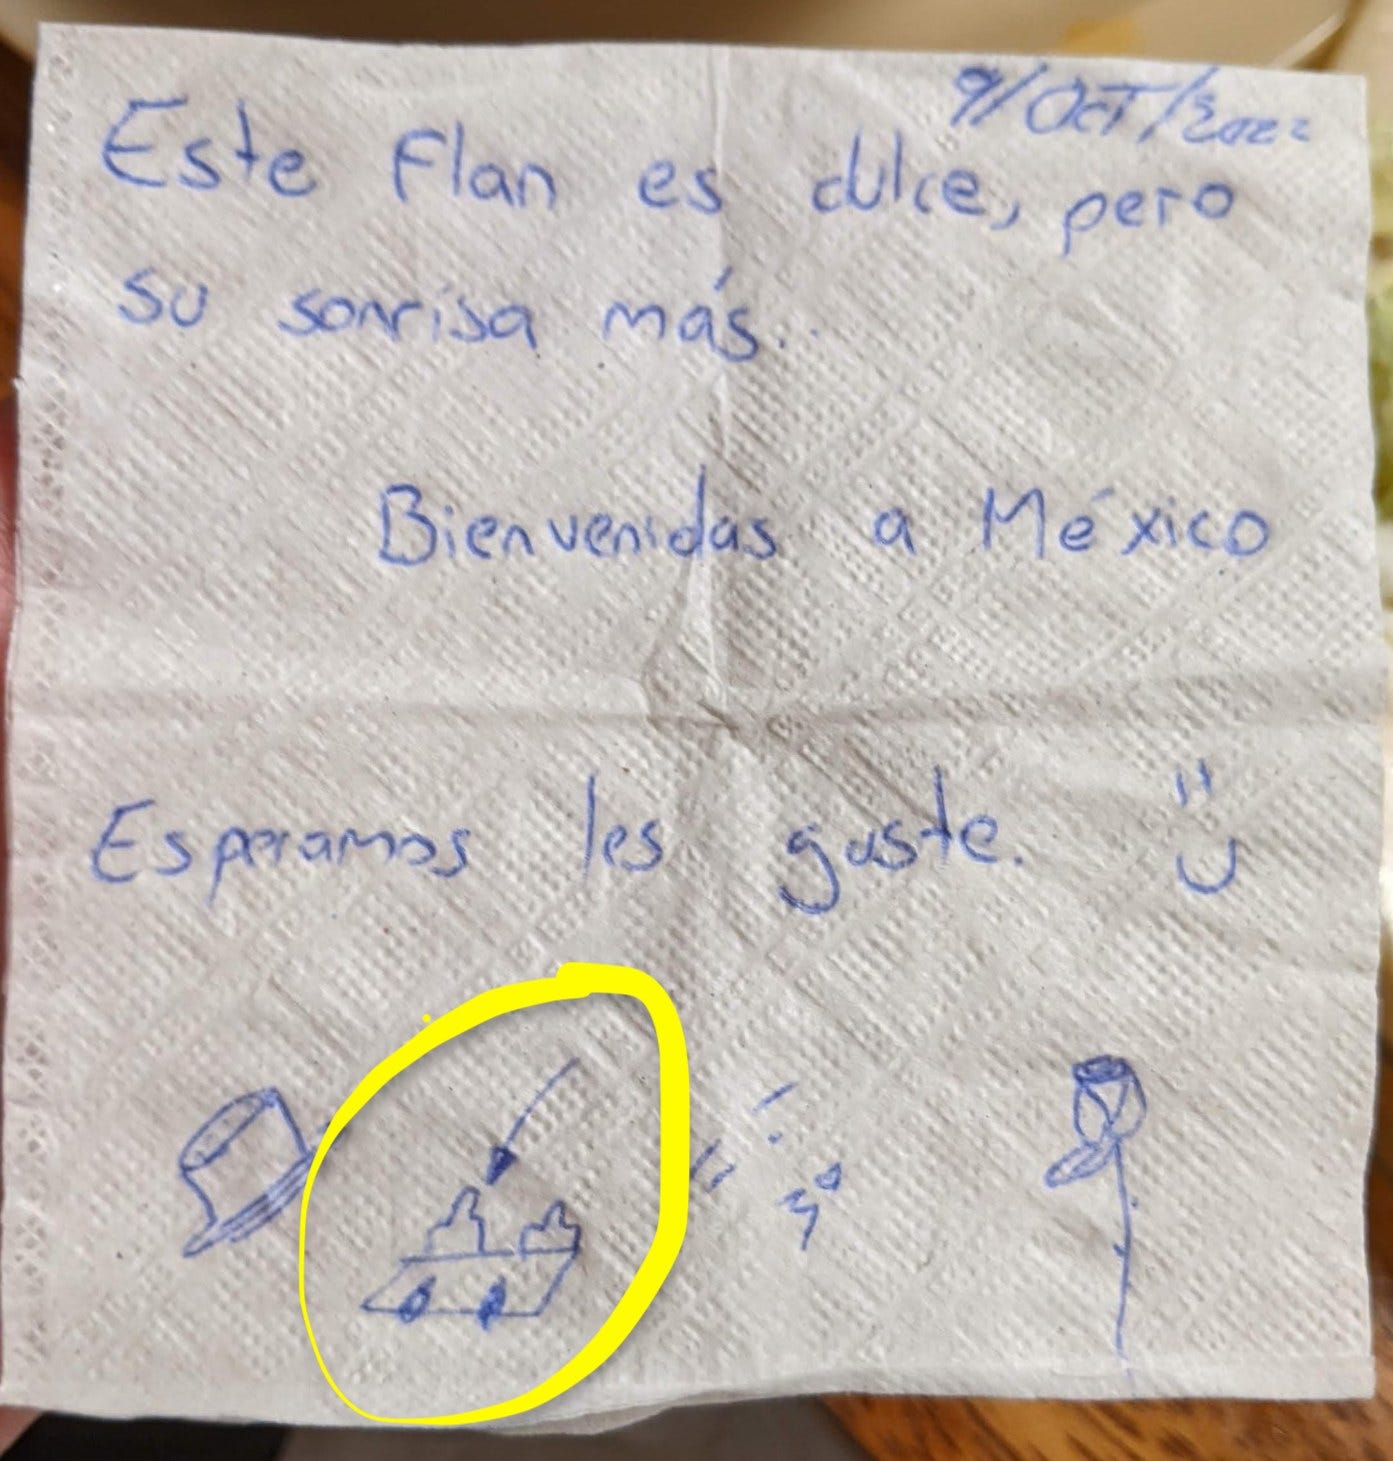 9/OCT/2022
Este Flan es dulce, pero
su sonrisa más..
Bienvenidas a México
Esperamos les guste.